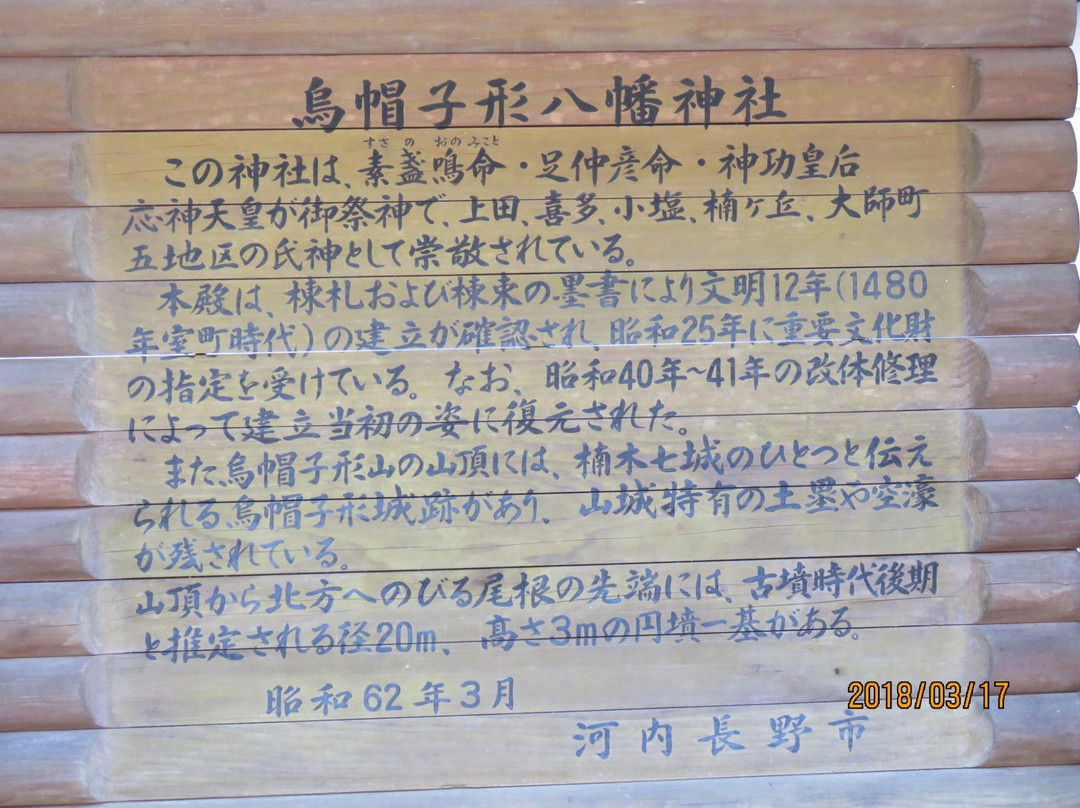 烏帽子形八幡神社
すさ の おの みこと
この神社は、素盞鳴命・足仲彦命・神功皇后
応神天皇が御祭神で、上田、喜多、小塩、楠ヶ丘、大師町
五地区の氏神として崇敬されている。
本殿は、棟札および棟束の墨書により文明12年(1480
年室町時代)の建立が確認され、昭和25年に重要文化財
の指定を受けている。なお、昭和40年~41年の改体修理
によって建立当初の姿に復元された。
また烏帽子形山の山頂には、楠木七城のひとつと伝え
られる烏帽子形城跡があり、山城特有の土塁や空濠
が残されている。
山頂から北方へのびる尾根の先端には、古墳時代後期
と推定される径20m、高さ3mの円墳一基がある。
昭和62年3月
河内長野市
2018/03/17